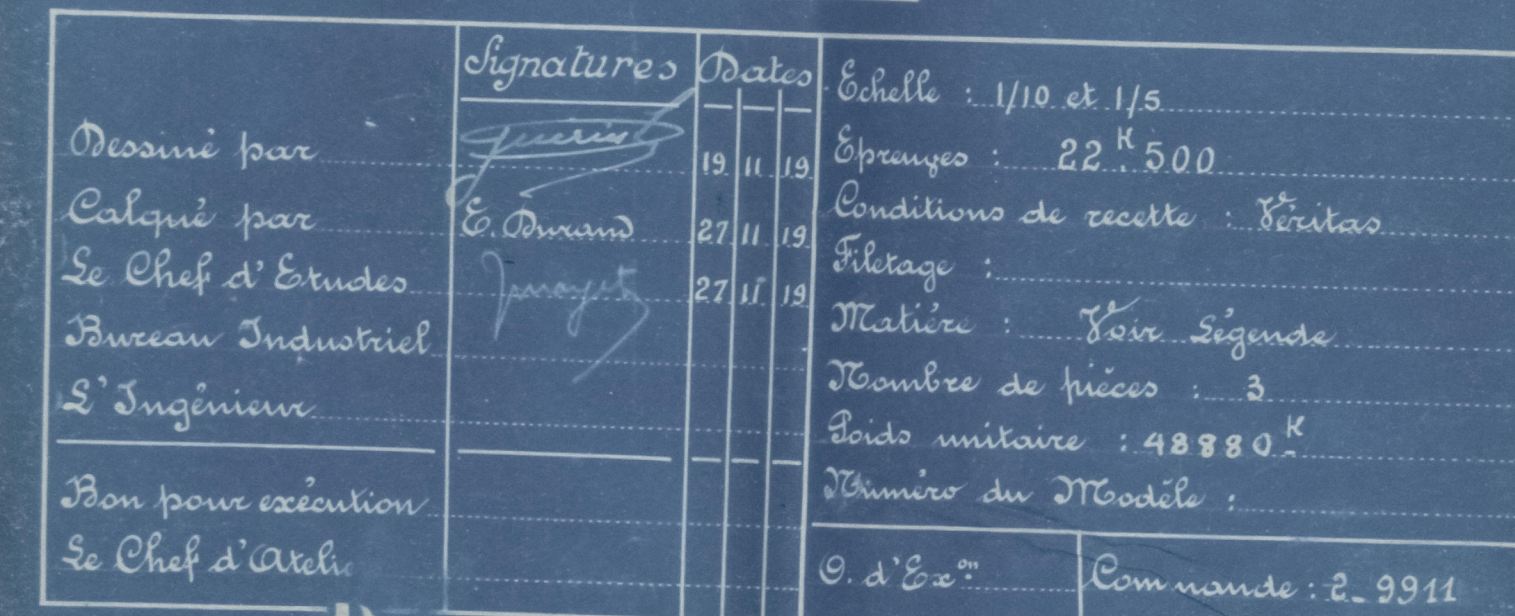 Signatures Dates
Dessiné par Guérin 19 11 19
Calqué par E. Durand 27 11 19
Le Chef d'Etudes 27 11 19
Bureau Industriel
L'Ingénieur
Bon pour exécution
Le Chef d'Atelie
Echelle : 1/10 et 1/5
Epreuves : 22K.500
Conditions de recette : Véritas
Filetage :
Matière : Voir Légende
Nombre de pièces : 3
Poids unitaire : 48880K
Numéro du Modèle :
O. d'Exon
Commande : 2_9911